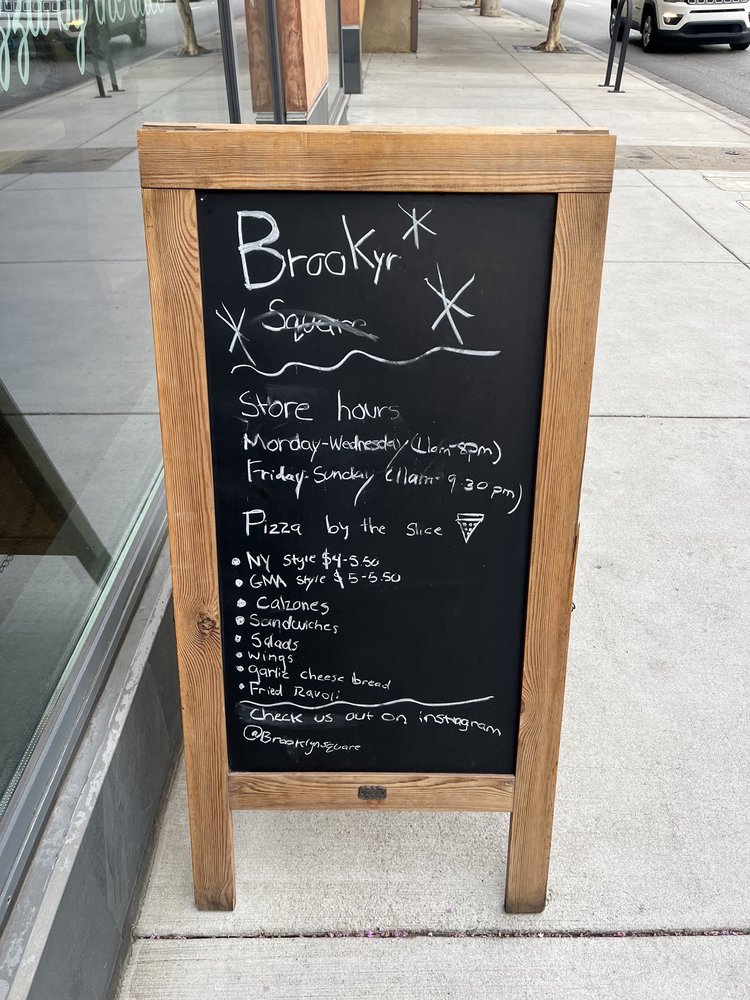 by the slice
Brookyr
Square
Store hours
Monday-Wednesday (11am-8pm)
Friday-Sunday (11am-9:30pm)
Pizza by the slice
• NY style $4-5.50
• GMA style $5-5.50
• Calzones
• Sandwiches
• Salads
• Wings
• garlic cheese bread
• Fried Ravoli
Check us out on instagram
@Brooklynsquare